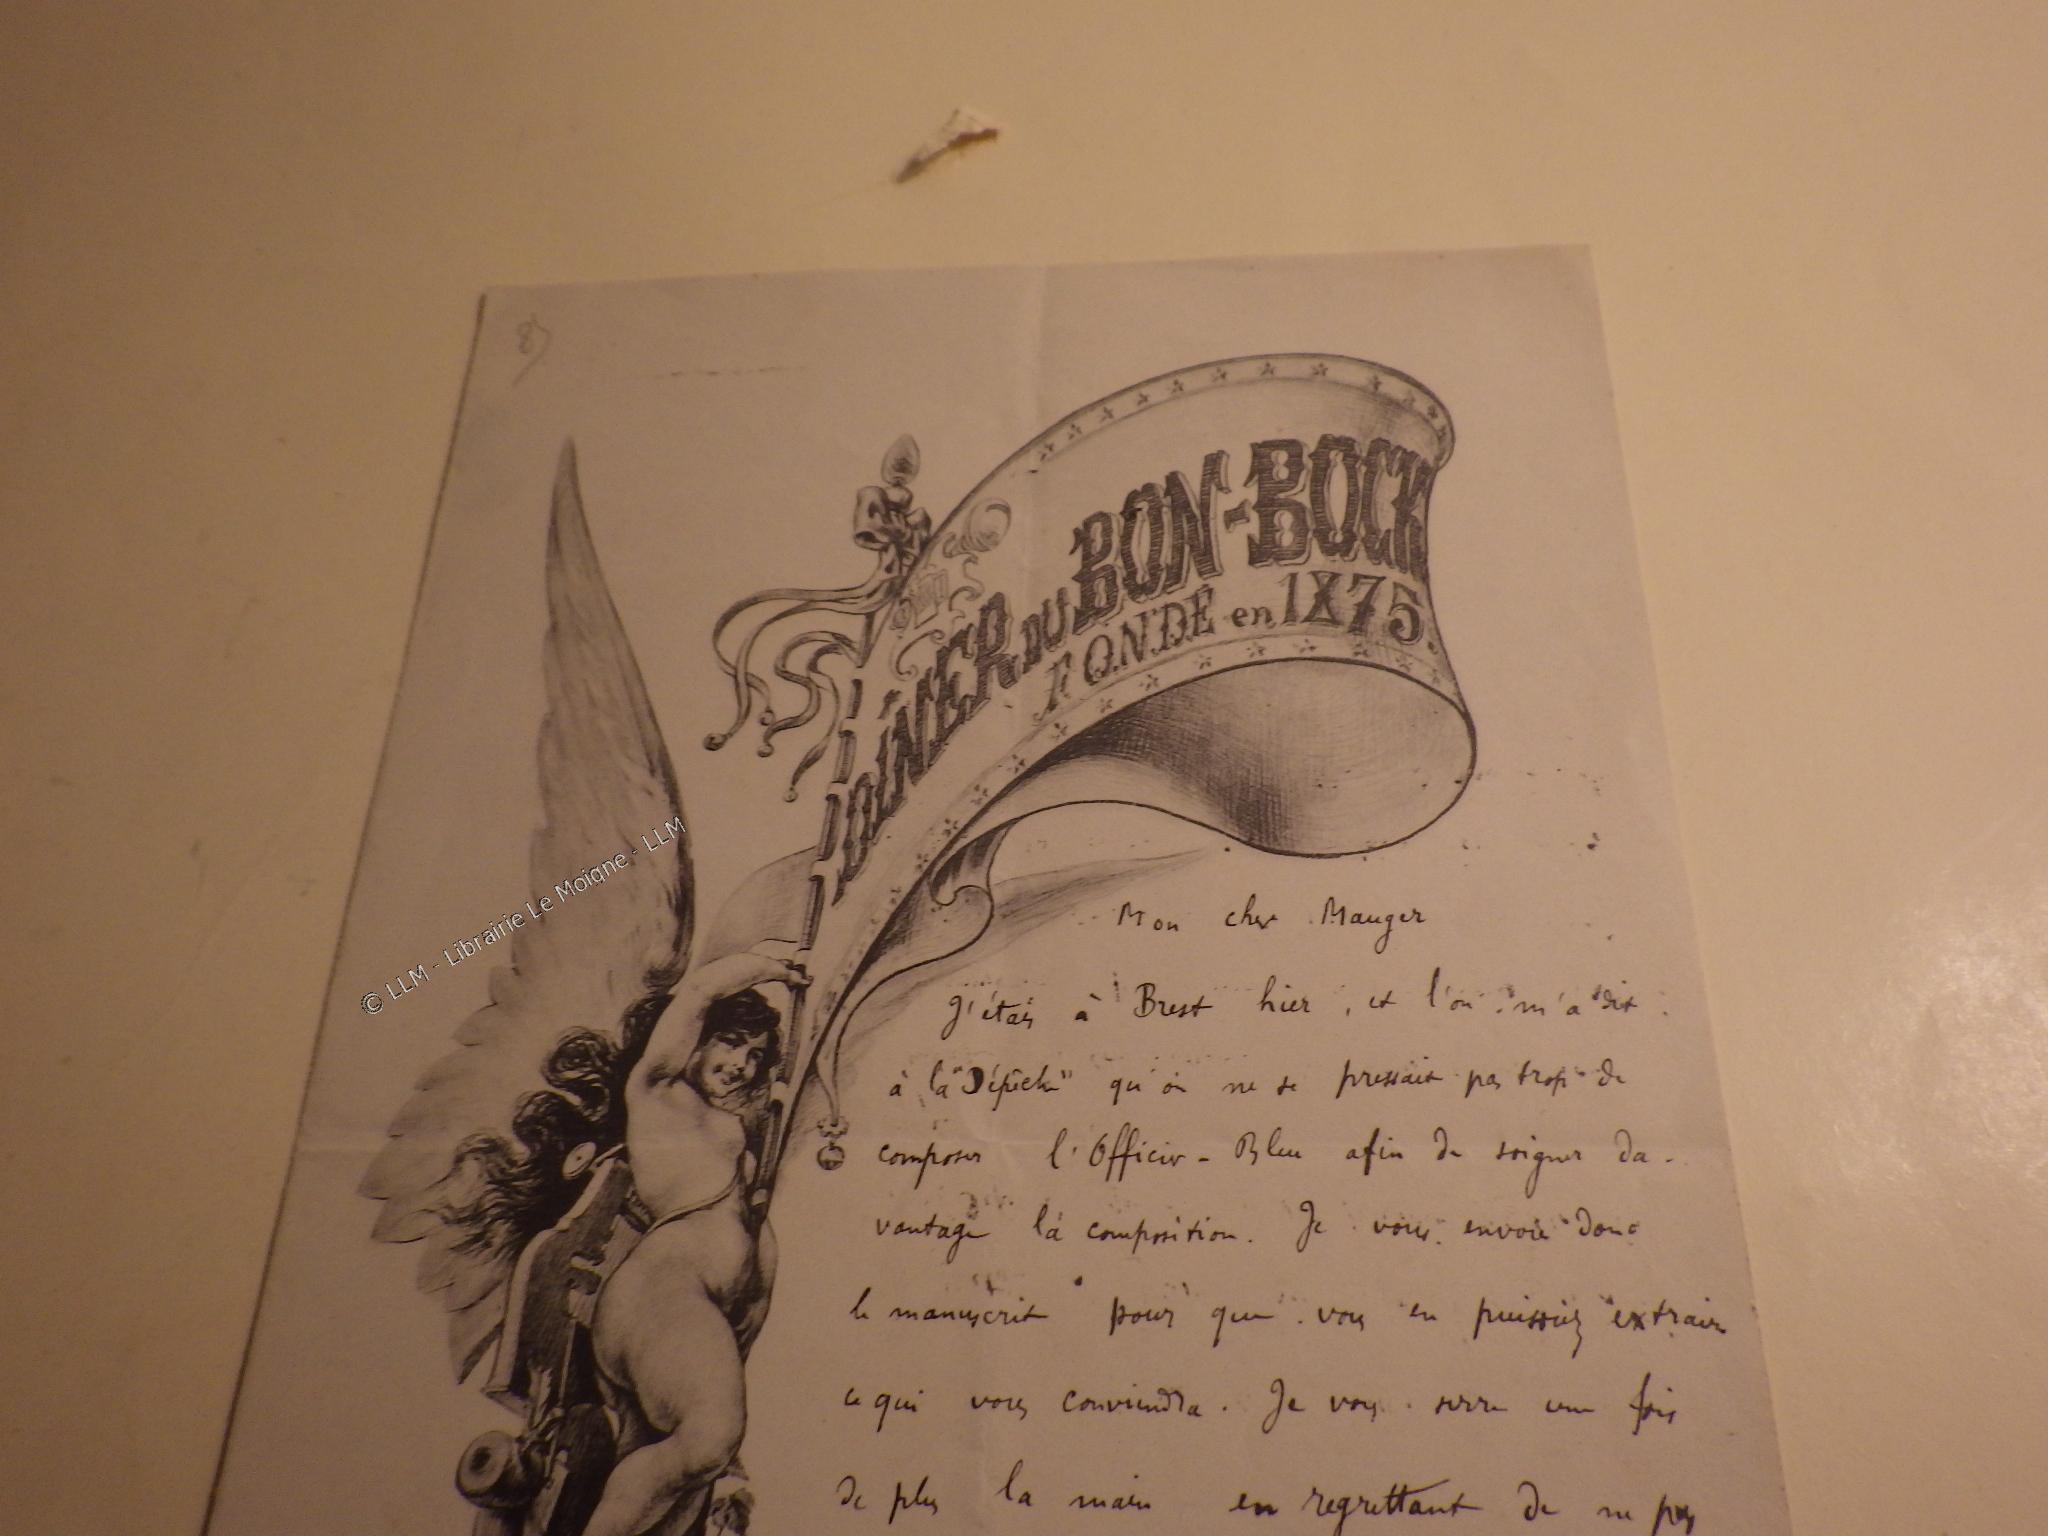 8)
DÎNER DU BON-BOCK
FONDÉ en 1875.
© LLM - Librairie Le Moigne - LLM
Mon cher Mauger
J'étais à Brest hier, et l'on m'a dit
à la "Dépêche" qu'on ne se pressait pas trop de
composer l'Officier-Bleu afin de soigner da-
vantage la composition. Je vous envoie donc
le manuscrit pour que vous en puissiez extraire
ce qui vous conviendra. Je vous serre une fois
de plus la main en regrettant de ne pas